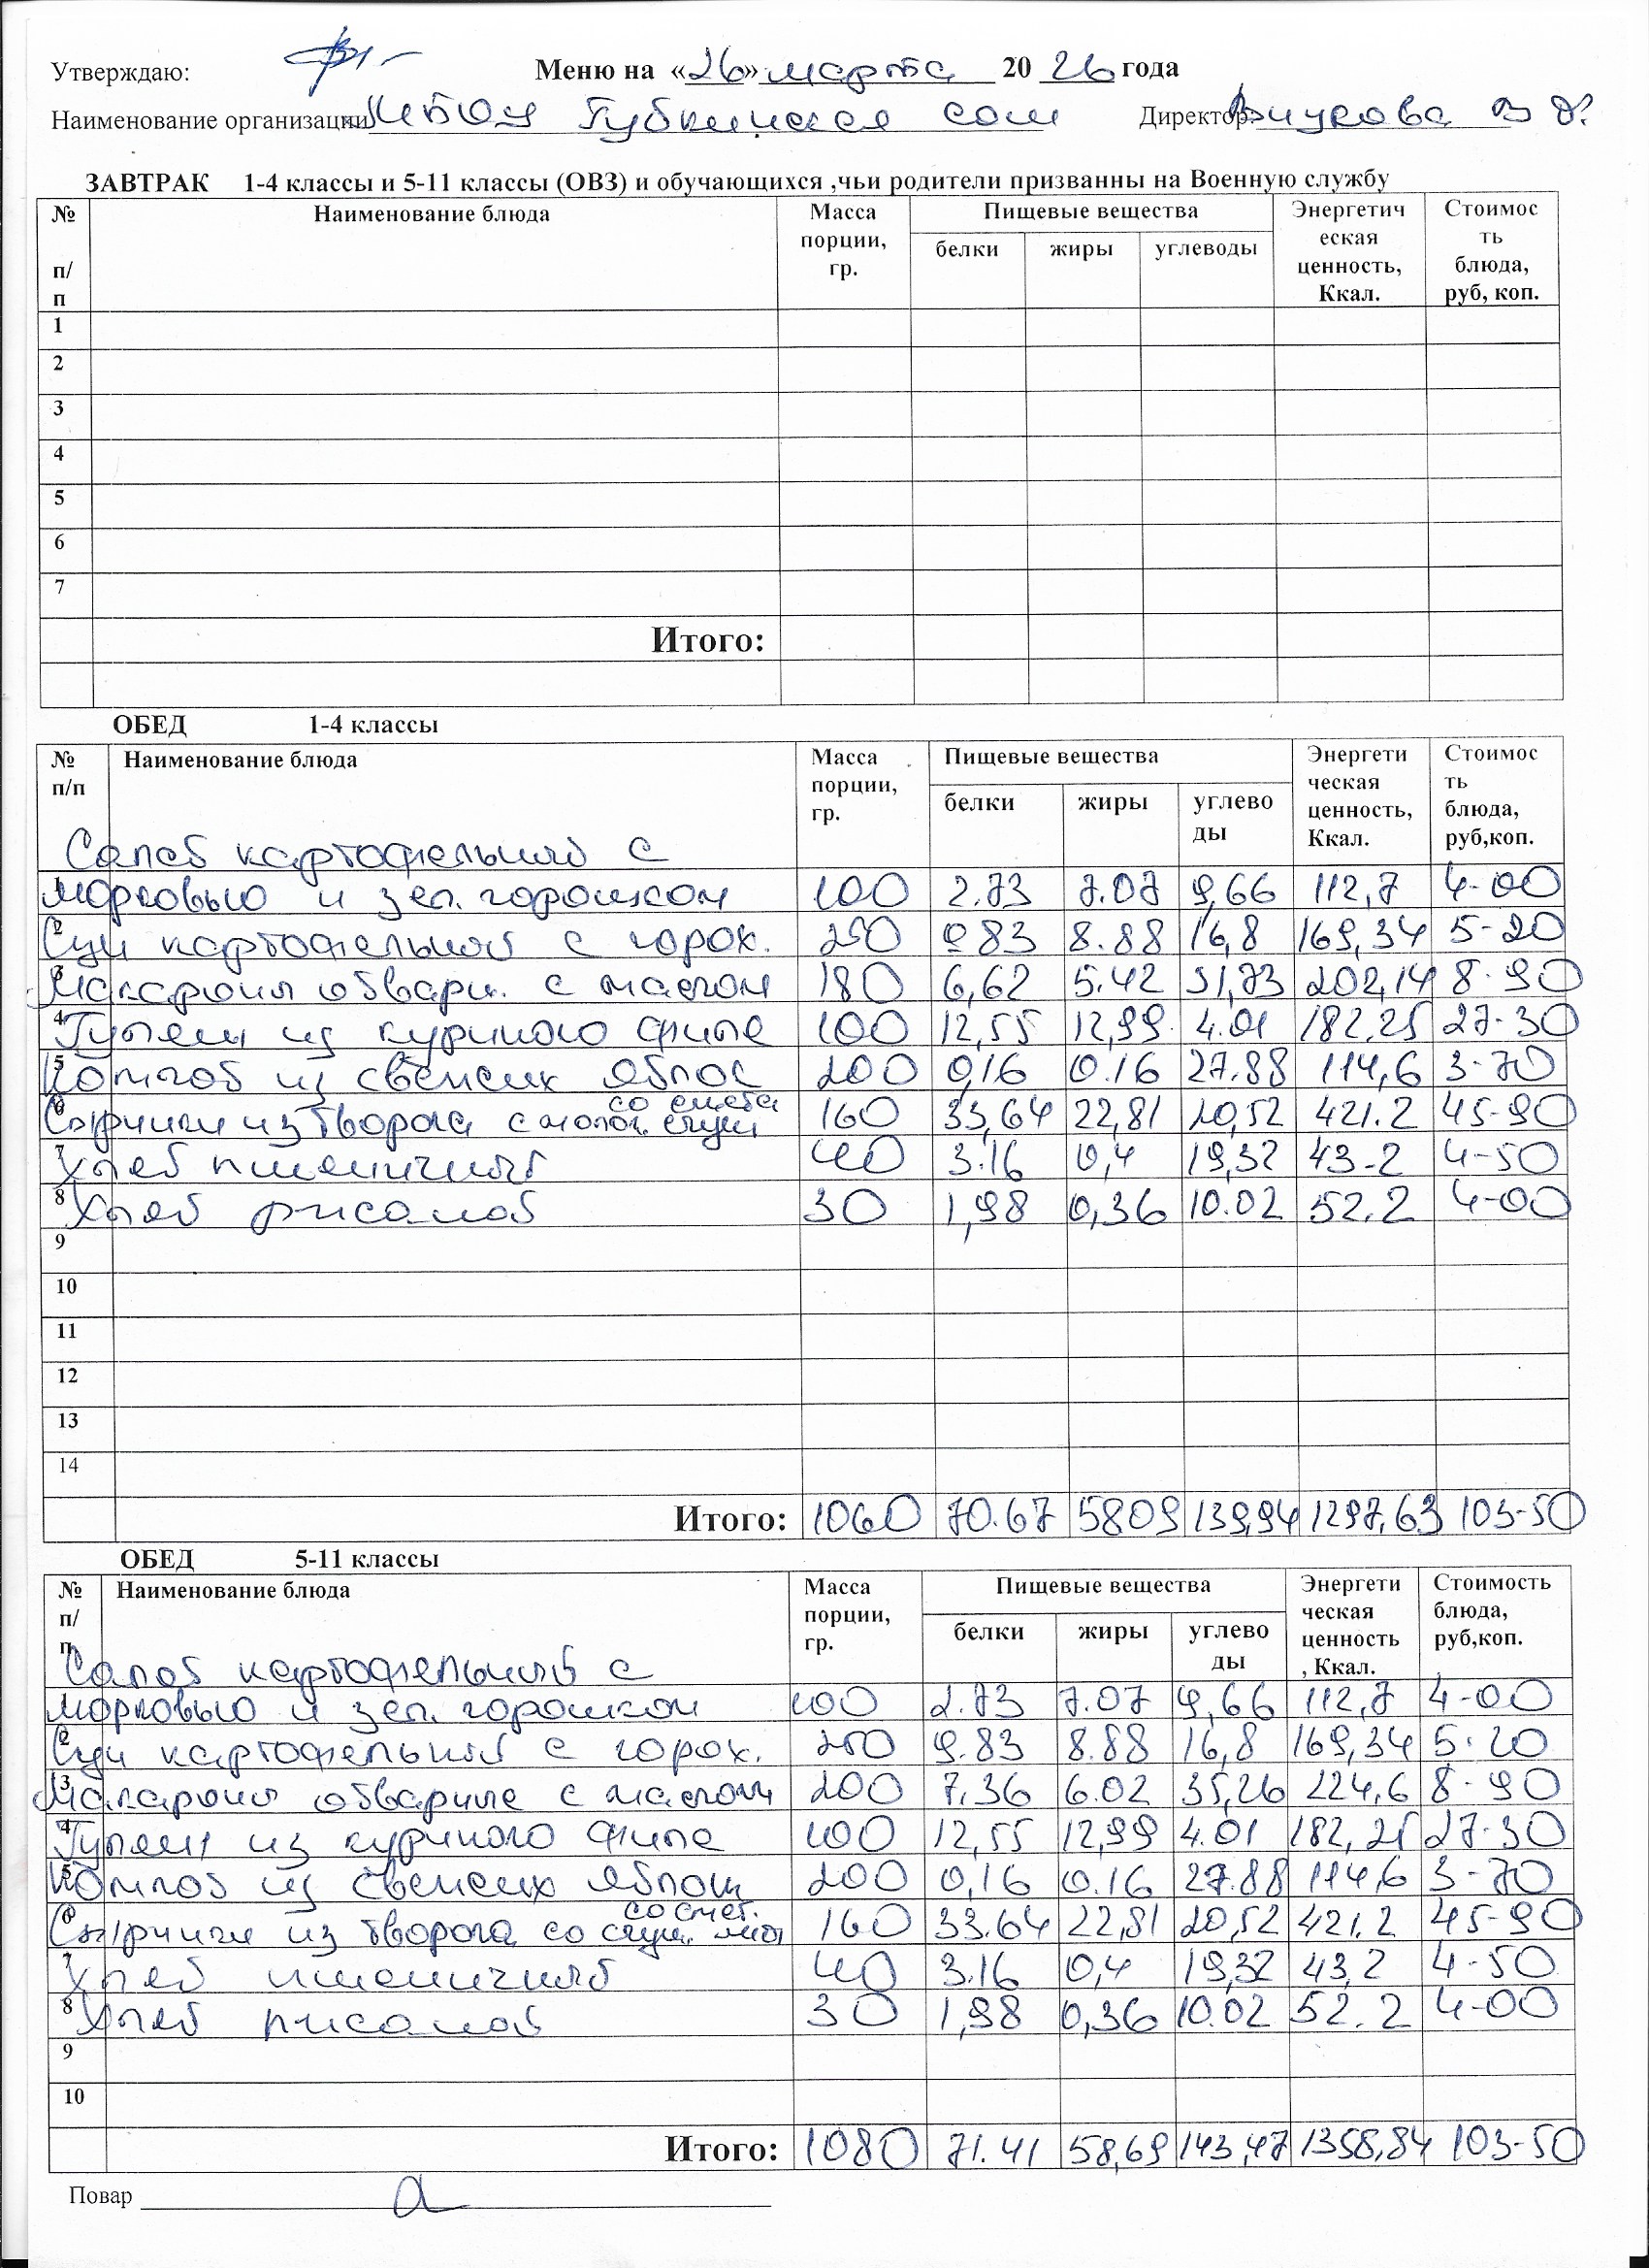 Утверждаю: Меню на «26» марта 20 26 года
Наименование организации МБОУ Губкинская сош Директор В
ЗАВТРАК 1-4 классы и 5-11 классы (ОВЗ) и обучающихся ,чьи родители призванны на Военную службу
№ п/п Наименование блюда Масса порции, гр. Пищевые вещества Энергетическая ценность, Ккал. Стоимость блюда, руб, коп.
белки жиры углеводы
1
2
3
4
5
6
7
Итого:
ОБЕД 1-4 классы
№ п/п Наименование блюда Масса порции, гр. Пищевые вещества Энергетическая ценность, Ккал. Стоимость блюда, руб,коп.
белки жиры углеводы
Салат картофельный с
1 морковью и зел. горошком 100 2.73 7.07 9,66 112,7 4-00
2 Суп картофельный с горох. 250 9.83 8.88 16,8 169,34 5-20
3 Макароны отварн. с маслом 180 6,62 5.42 31,73 202,14 8-90
4 Гуляш из куриного филе 100 12,55 12,99 4.01 182,25 27-30
5 Компот из свежих яблок 200 0,16 0.16 27.88 114,6 3-70
со смета
6 Сырники из творога с молок. сгущ 160 33,64 22,81 20,52 421.2 45-90
7 Хлеб пшеничный 40 3.16 0,4 19,32 43-2 4-50
8 Хлеб ржаной 30 1,98 0,36 10.02 52.2 4-00
9
10
11
12
13
14
Итого: 1060 70.67 5809 139,94 1297,63 103-50
ОБЕД 5-11 классы
№ п/п Наименование блюда Масса порции, гр. Пищевые вещества Энергетическая ценность, Ккал. Стоимость блюда, руб,коп.
белки жиры углеводы
Салат картофельный с
1 морковью и зел. горошком 100 2.73 7.07 9,66 112,7 4-00
2 Суп картофельный с горох. 250 9.83 8.88 16,8 169,34 5-20
3 Макароны отварные с маслом 200 7,36 6.02 35,26 224,6 8-90
4 Гуляш из куриного филе 100 12,55 12,99 4.01 182,25 27-30
5 Компот из свежих яблок 200 0,16 0.16 27.88 114,6 3-70
со смет.
6 Сырники из творога со сгущ. мол 160 33.64 22,81 20,52 421.2 45-90
7 Хлеб пшеничный 40 3.16 0,4 19,32 43,2 4-50
8 Хлеб ржаной 30 1,98 0,36 10.02 52.2 4-00
9
10
Итого: 1080 71.41 58,69 143,47 1358,84 103-50
Повар